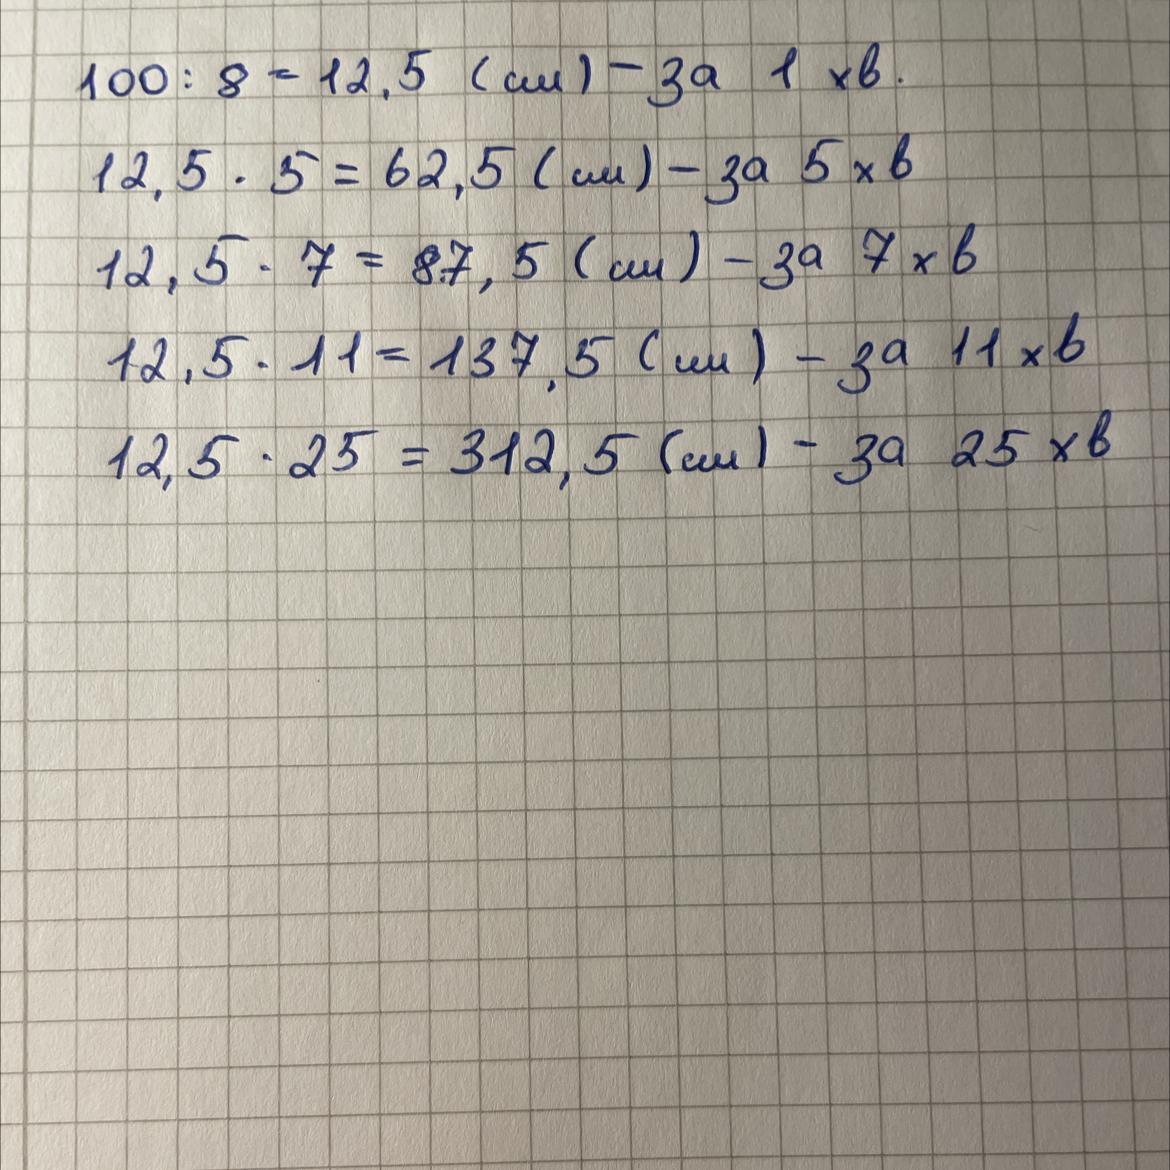 100 : 8 = 12,5 (см) - за 1 хв.
12,5 · 5 = 62,5 (см) - за 5 хв
12,5 · 7 = 87,5 (см) - за 7 хв
12,5 · 11 = 137,5 (см) - за 11 хв
12,5 · 25 = 312,5 (см) - за 25 хв